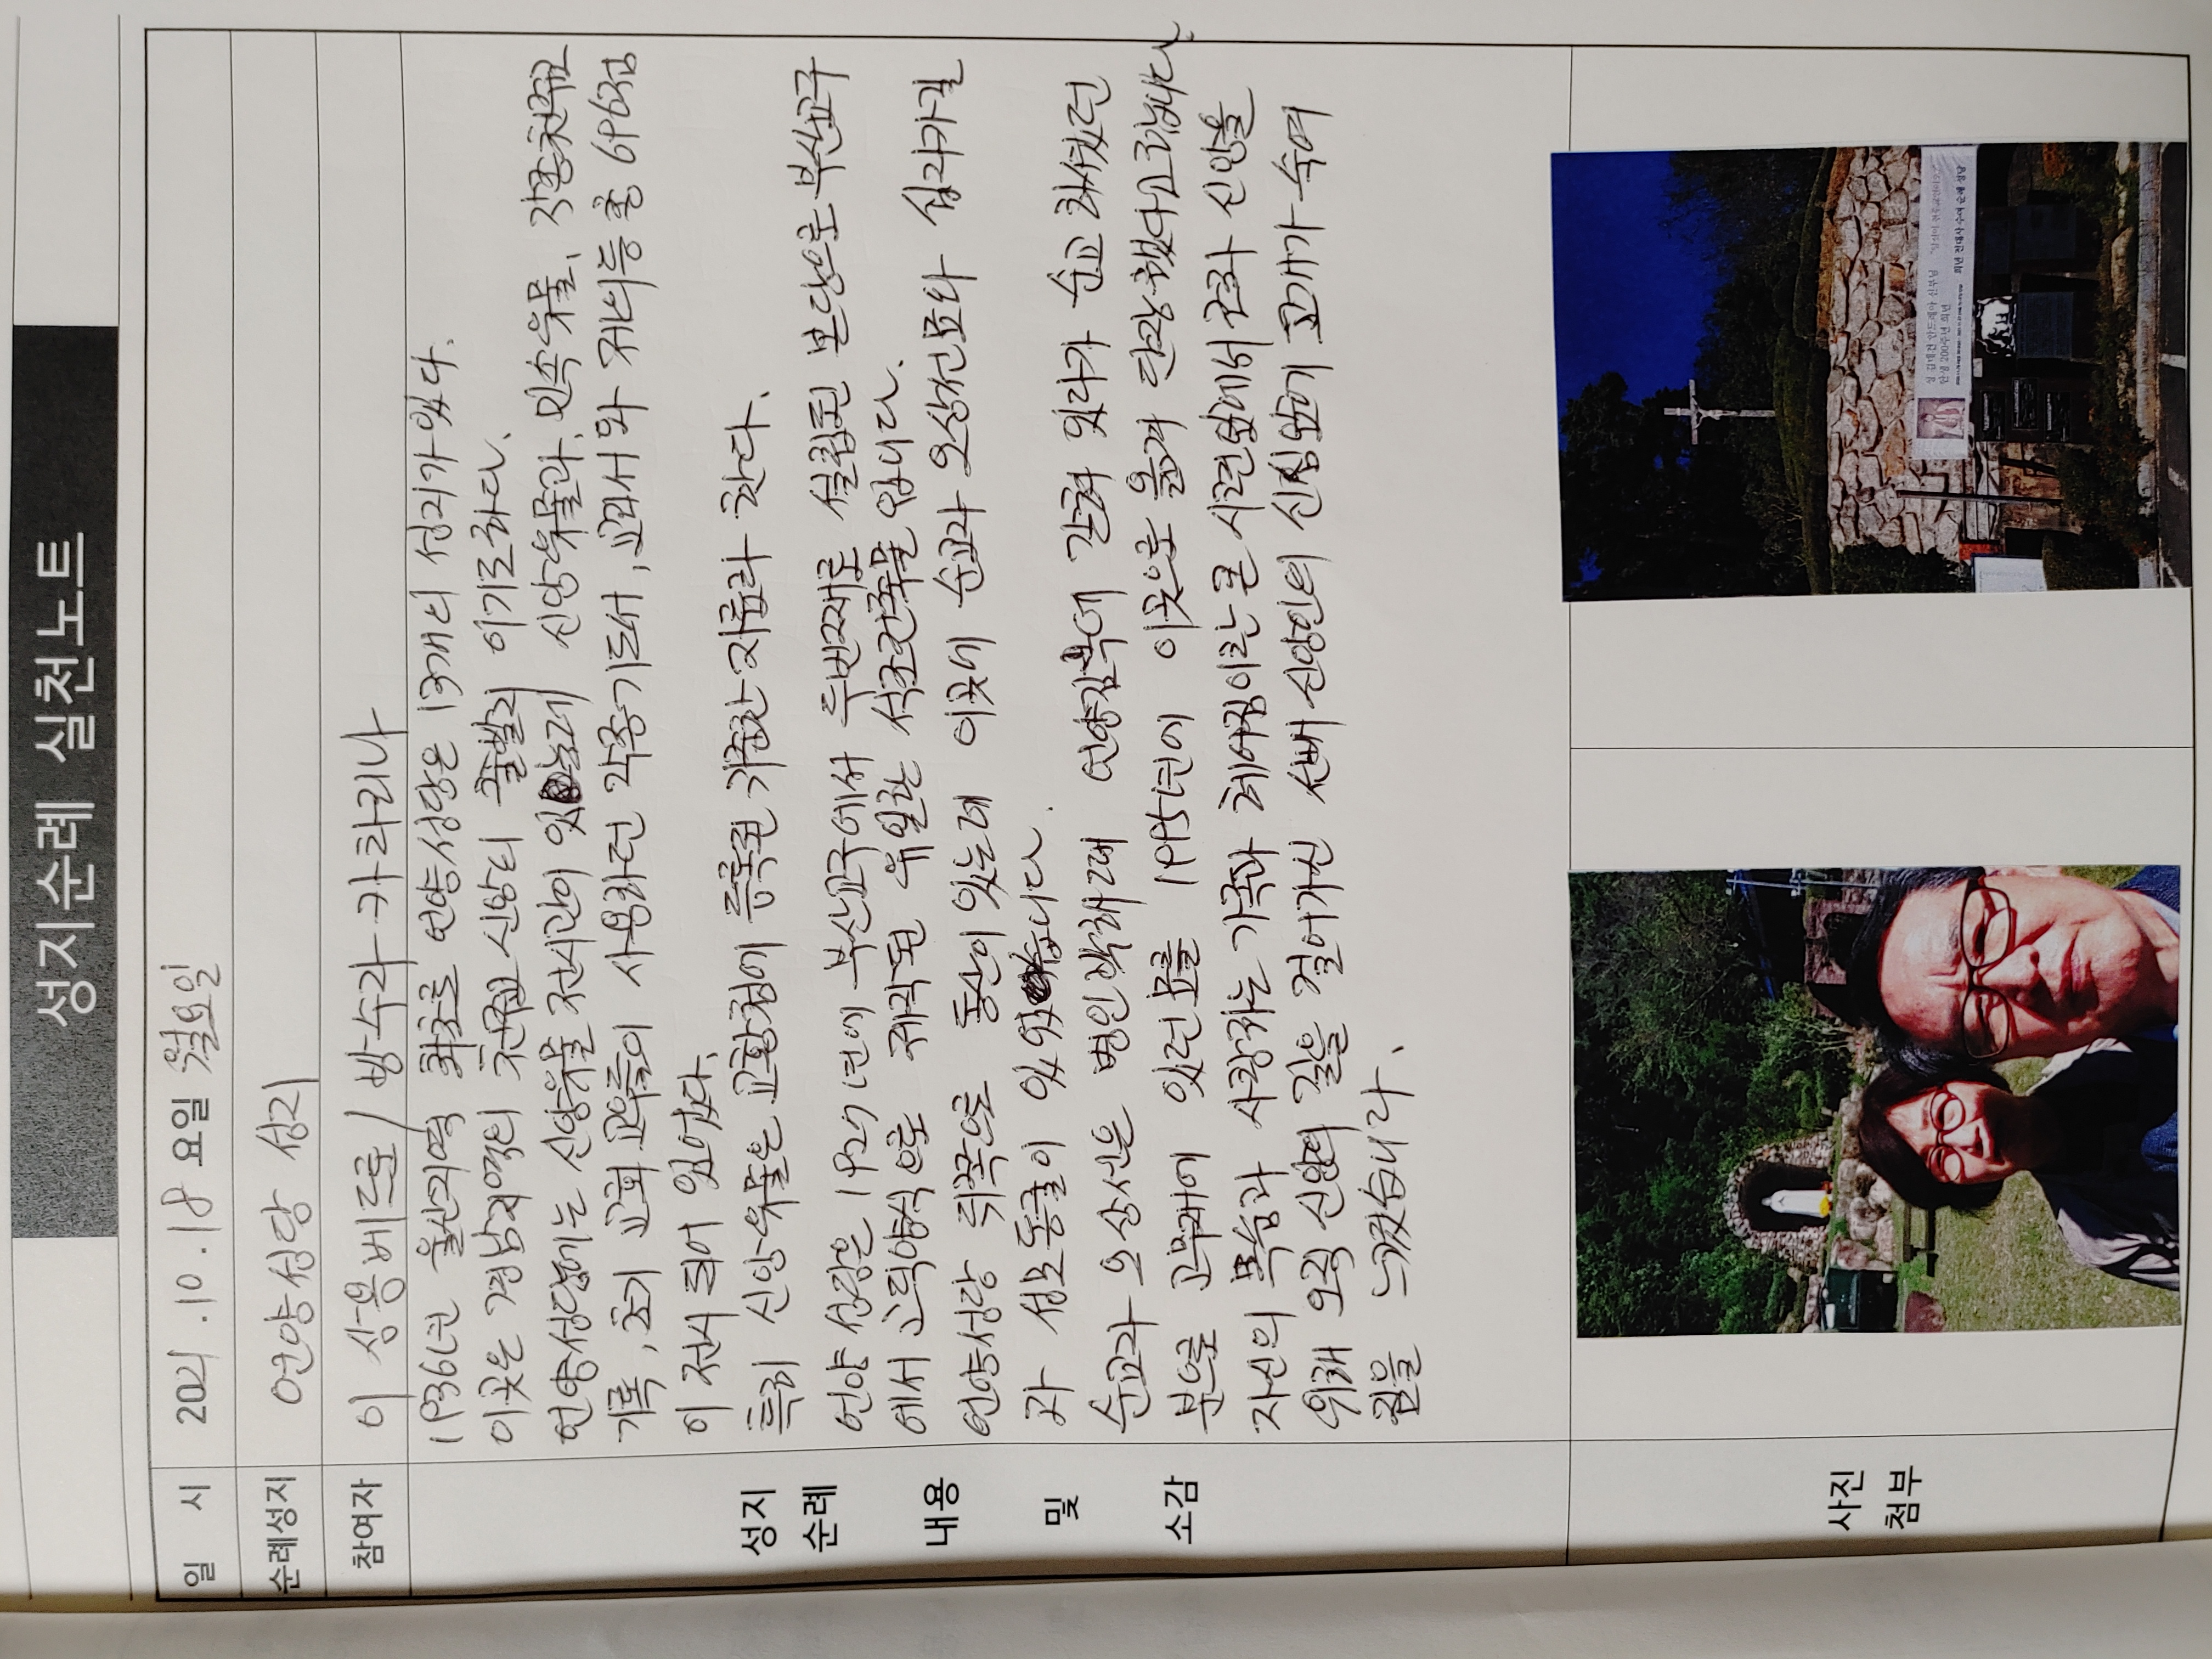 성지순례 실천노트
일 시 2021.10.18 요일 월요일
순례성지 언양성당 성지
참여자 이 상용베드로 / 방수라 카타리나
1936년 울산지역 최초로 언양성당은 13개의 성지가 있다.
이곳은 경남지역의 천주교 신앙의 출발지 이기도하다.
언양성당에는 신앙유물 전시관이 있는데 신앙유물과, 민속유물, 각종천주교
기록, 초기 교회 교우들이 사용하던 각종기도서, 교리서와 제의등 총 696점
이 전시 되어 있었다.
특히 신앙유물은 교황청에 등록된 귀중한 자료라 한다.
언양 성당은 1927년에 부산교구에서 두번째로 설립된 본당으로 부산교구
에서 고딕양식으로 제작된 유일한 석조건축물 입니다.
언양성당 뒤쪽으로 동산이 있는데 이곳에 순교자 오상선묘와 십자가길
과 성모동굴이 있었습니다.
순교자 오상선은 병인박해때 언양감옥에 갇혀 있다가 순교 하셨던
분으로 고무재에 있던 묘를 1995년에 이곳으로 옮겨 단장했다고합니다
자신의 목숨과 사랑하는 가족과 헤어짐이란 큰 시련앞에서 주과 신앙을
위해 오직 신앙의 길을 걸어가신 선배 신앙인의 신심앞에 고개가 숙여
짐을 느꼈습니다.
성지
순례
내용
및
소감
사진
첨부
성 김대건 안드레아 신부님
탄생 200주년 희년
희년 전대사 수여 순례 성당